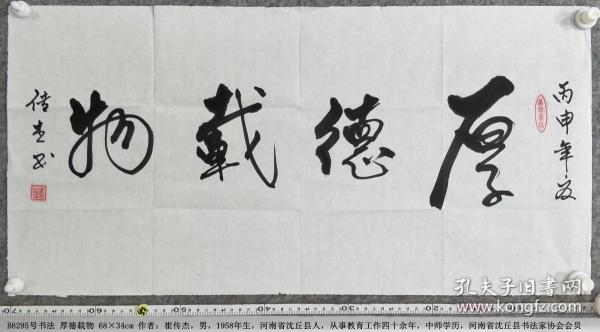 丙申年夏
厚德載物
传杰书
孔夫子旧书网
B8295号书法 厚德载物 68×34cm 作者：崔传杰，男，1958年生，河南省沈丘县人，从事教育工作四十余年，中师学历，河南省沈丘县书法家协会会员